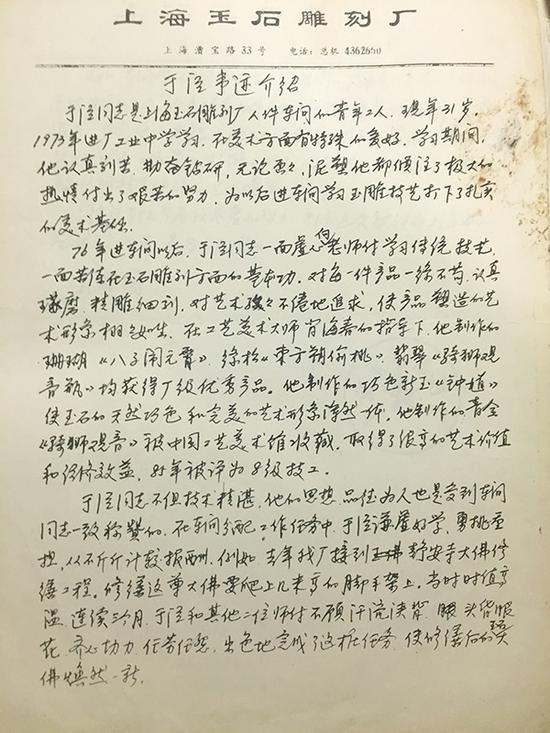 上海玉石雕刻厂
上海漕宝路33号 电话：总机 4362660
于泾事迹介绍
于泾同志是上海玉石雕刻厂人件车间的青年工人，现年31岁，
1973年进厂工业中学学习，在美术方面有特殊的爱好。学习期间，
他认真刻苦，勤奋钻研，无论画、泥塑他都倾注了极大的
热情付出了艰苦的努力，为以后进车间学习玉雕技艺打下了扎实
的美术基础。
76年进车间以后，于泾同志一面虚心向老师付学习传统技艺，
一面苦练在玉石雕刻方面的基本功。对每一件产品一丝不苟，认真
琢磨，精雕细刻，对艺术孜孜不倦地追求，使产品塑造的艺
术形象栩栩如生，在工艺美术大师肖海春的指导下，他制作的
珊瑚《八子闹元宵》、绿松《东方朔偷桃》、翡翠《骑狮观
音瓶》均获得厂级优秀产品。他制作的巧色新玉《钟馗》
使玉石的天然巧色和完美的艺术形象浑然一体。他制作的青金
《骑狮观音》被中国工艺美术馆收藏，取得了很高的艺术价值
和经济效益，85年被评为8级技工。
于泾同志不但技术精湛，他的思想、品德为人也是受到车间
同志一致称赞的，在车间分配工作任务中，于泾谦虚好学，勇挑重
担，从不斤斤计较报酬，例如，去年我厂接到静安寺大佛修
缮工程。修缮这尊大佛要爬上几米高的脚手架上，当时时值高
温，连续三个月，于泾和其他二位师付不顾汗流浃背，眼花
花，齐心协力，任劳任怨，出色地完成了这桩任务，使修缮后的玉
佛焕然一新。